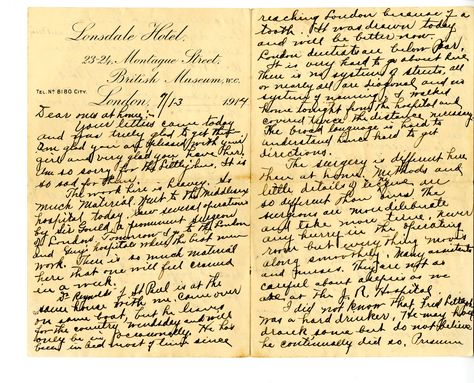 Lonsdale Hotel,
23-24, Montague Street,
British Museum, W.C.
TEL. No 8180 CITY.
London, 7/13 1914
Dear ones at home:-
Your letter came today
and was truly glad to get that
Am glad you are pleased with your
girl and very glad you have her.
Am so sorry for the Littlejohns. It is
so sad for them.
The work here is heavy. So
much material. Just to the Middlesex
hospital today. Saw several operations
by Sir Gould, a prominent surgeon
of London. Tomorrow I go to the London
and Guy's hospitals where the best men
work. There is so much material
here that one will feel crowed
in a week.
Dr Reynolds of St Paul is at the
same house with me. Came over
on same boat, but he leaves
for the country Wednesday and will
only be in occasionally. He has
been in bed most of time since
reaching London because of a
tooth. It was drawn today
and will be better now.
London dentists are below par.
It is very hard to go about here.
There is no system of streets, all
or nearly all are disposed and no
system of naming. I walked
home tonight from the hospital and
covered twice the distance necessary.
The broad language is hard to
understand hence hard to get
directions.
The surgery is different here
than at home. Methods and
little details of are
so different than ours. The
surgeons are more deliberate
and take more time, never
any hurry in the operating
room but everything moves
along smoothly. Many assistants
and nurses. They are not as
careful about asepsis as we
are at the J. R. Hospital.
I did not know that
was a hard drinker. He may have
drank some but do not believe
he continually did so. Presume